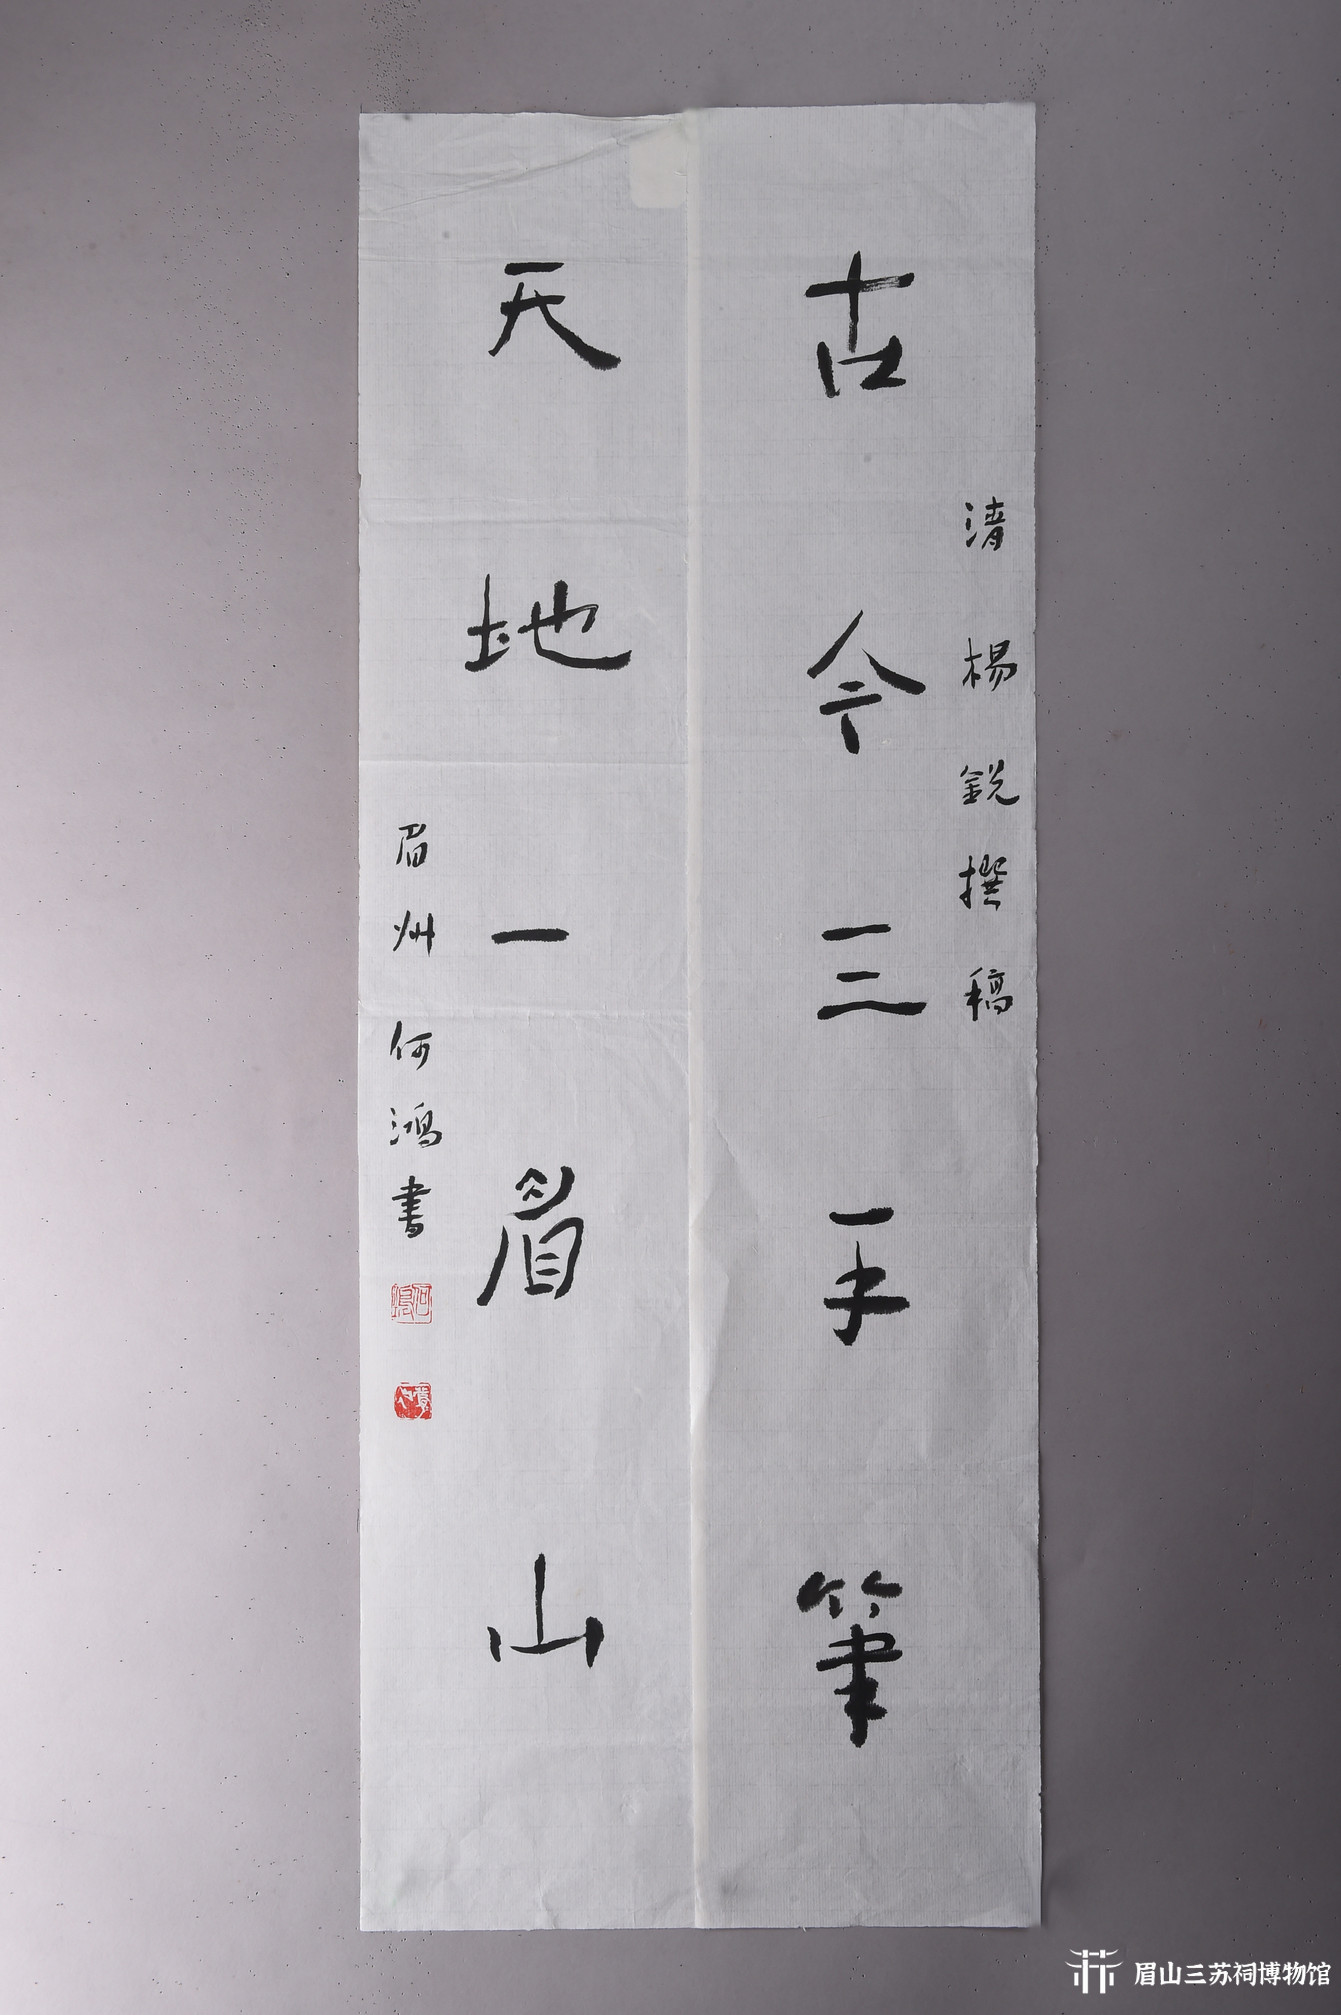 清楊銳撰稿
古今三手筆
天地一眉山
眉州何鴻書
何鴻
眉山三苏祠博物馆